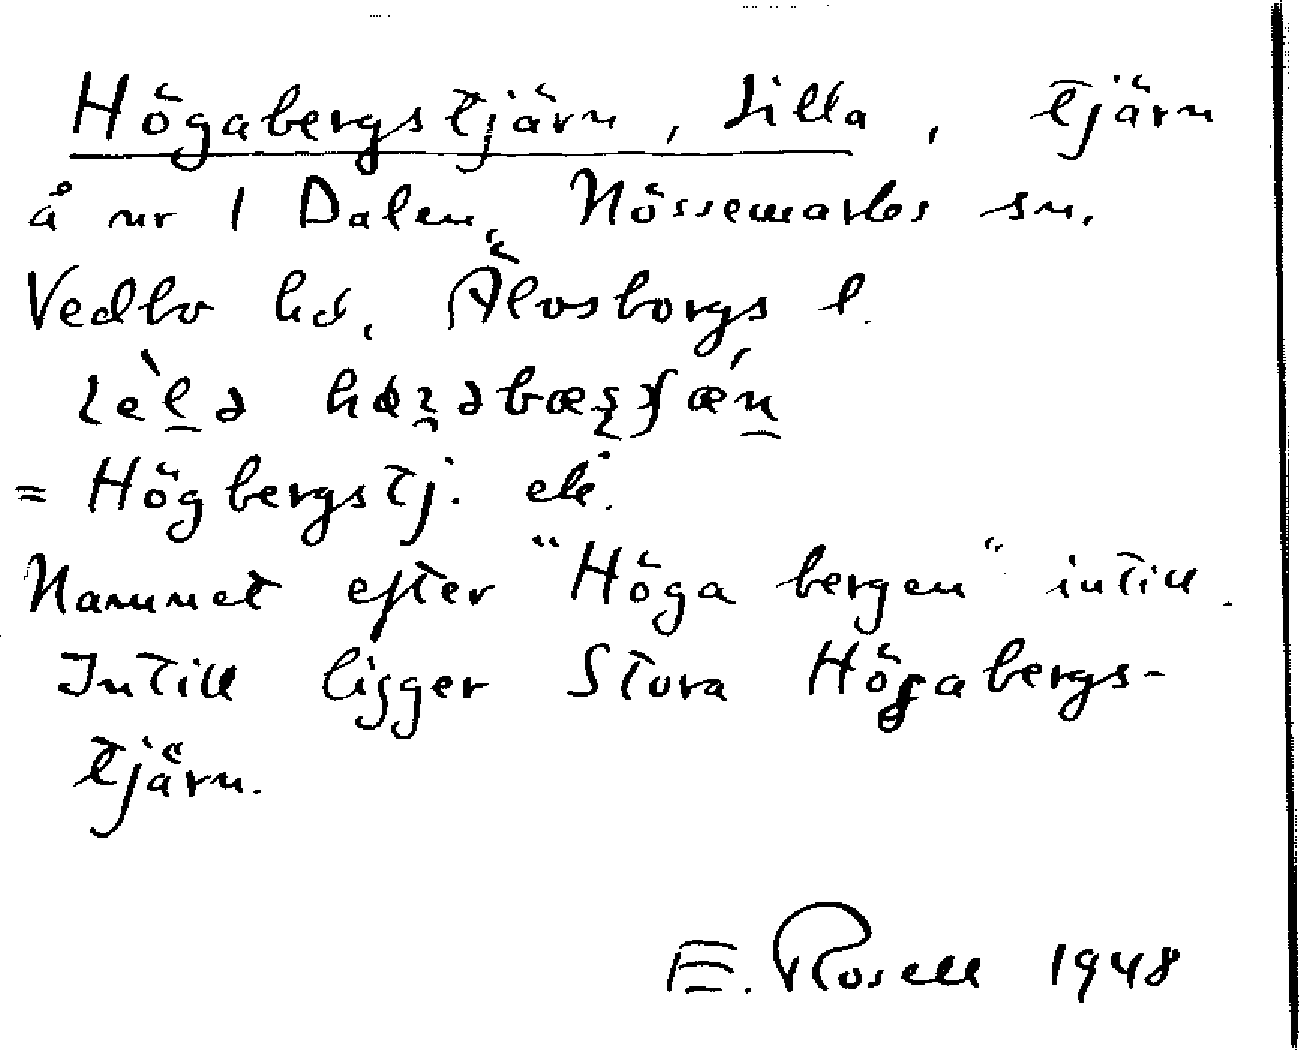 Högabergstjärn, Lilla, tjärn
å nr 1 Dalen, Nössemarks sn.
Vedbo hd, Älvsborgs l.
= Högbergstj. ek.
Namnet efter "Höga bergen" intill.
Intill ligger Stora Högabergs-
tjärn.
E. Rosell 1948